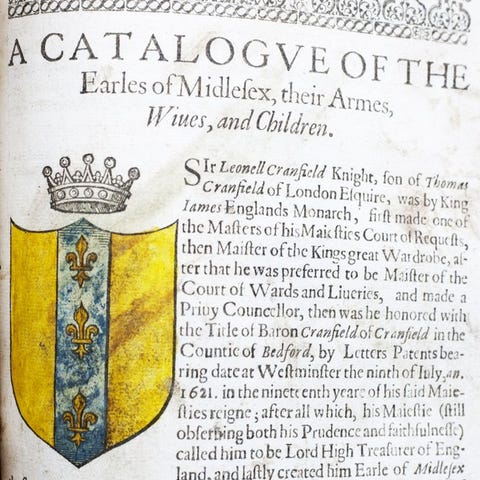 A CATALOGVE OF THE
Earles of Midleſex, their Armes,
Wiues, and Children.
SIr Leonell Cranfield Knight, ſon of Thomas
Cranfield of London Eſquire, was by King
Iames Englands Monarch, firſt made one of
the Maſters of his Maieſties Court of Requeſts,
then Maiſter of the Kings great Wardrobe, af-
ter that he was preferred to be Maiſter of the
Court of Wards and Liueries, and made a
Priuy Councellor, then was he honored with
the Title of Baron Cranfield of Cranfield in the
Countie of Bedford, by Letters Patents bea-
ring date at Weſtminſter the ninth of Iuly, an.
1621. in the nineteenth yeare of his ſaid Maie-
ſties reigne; after all which, his Maieſtie (ſtill
obſeruing both his Prudence and faithfulneſſe)
called him to be Lord High Treaſurer of Eng-
land, and laſtly created him Earle of Midleſex